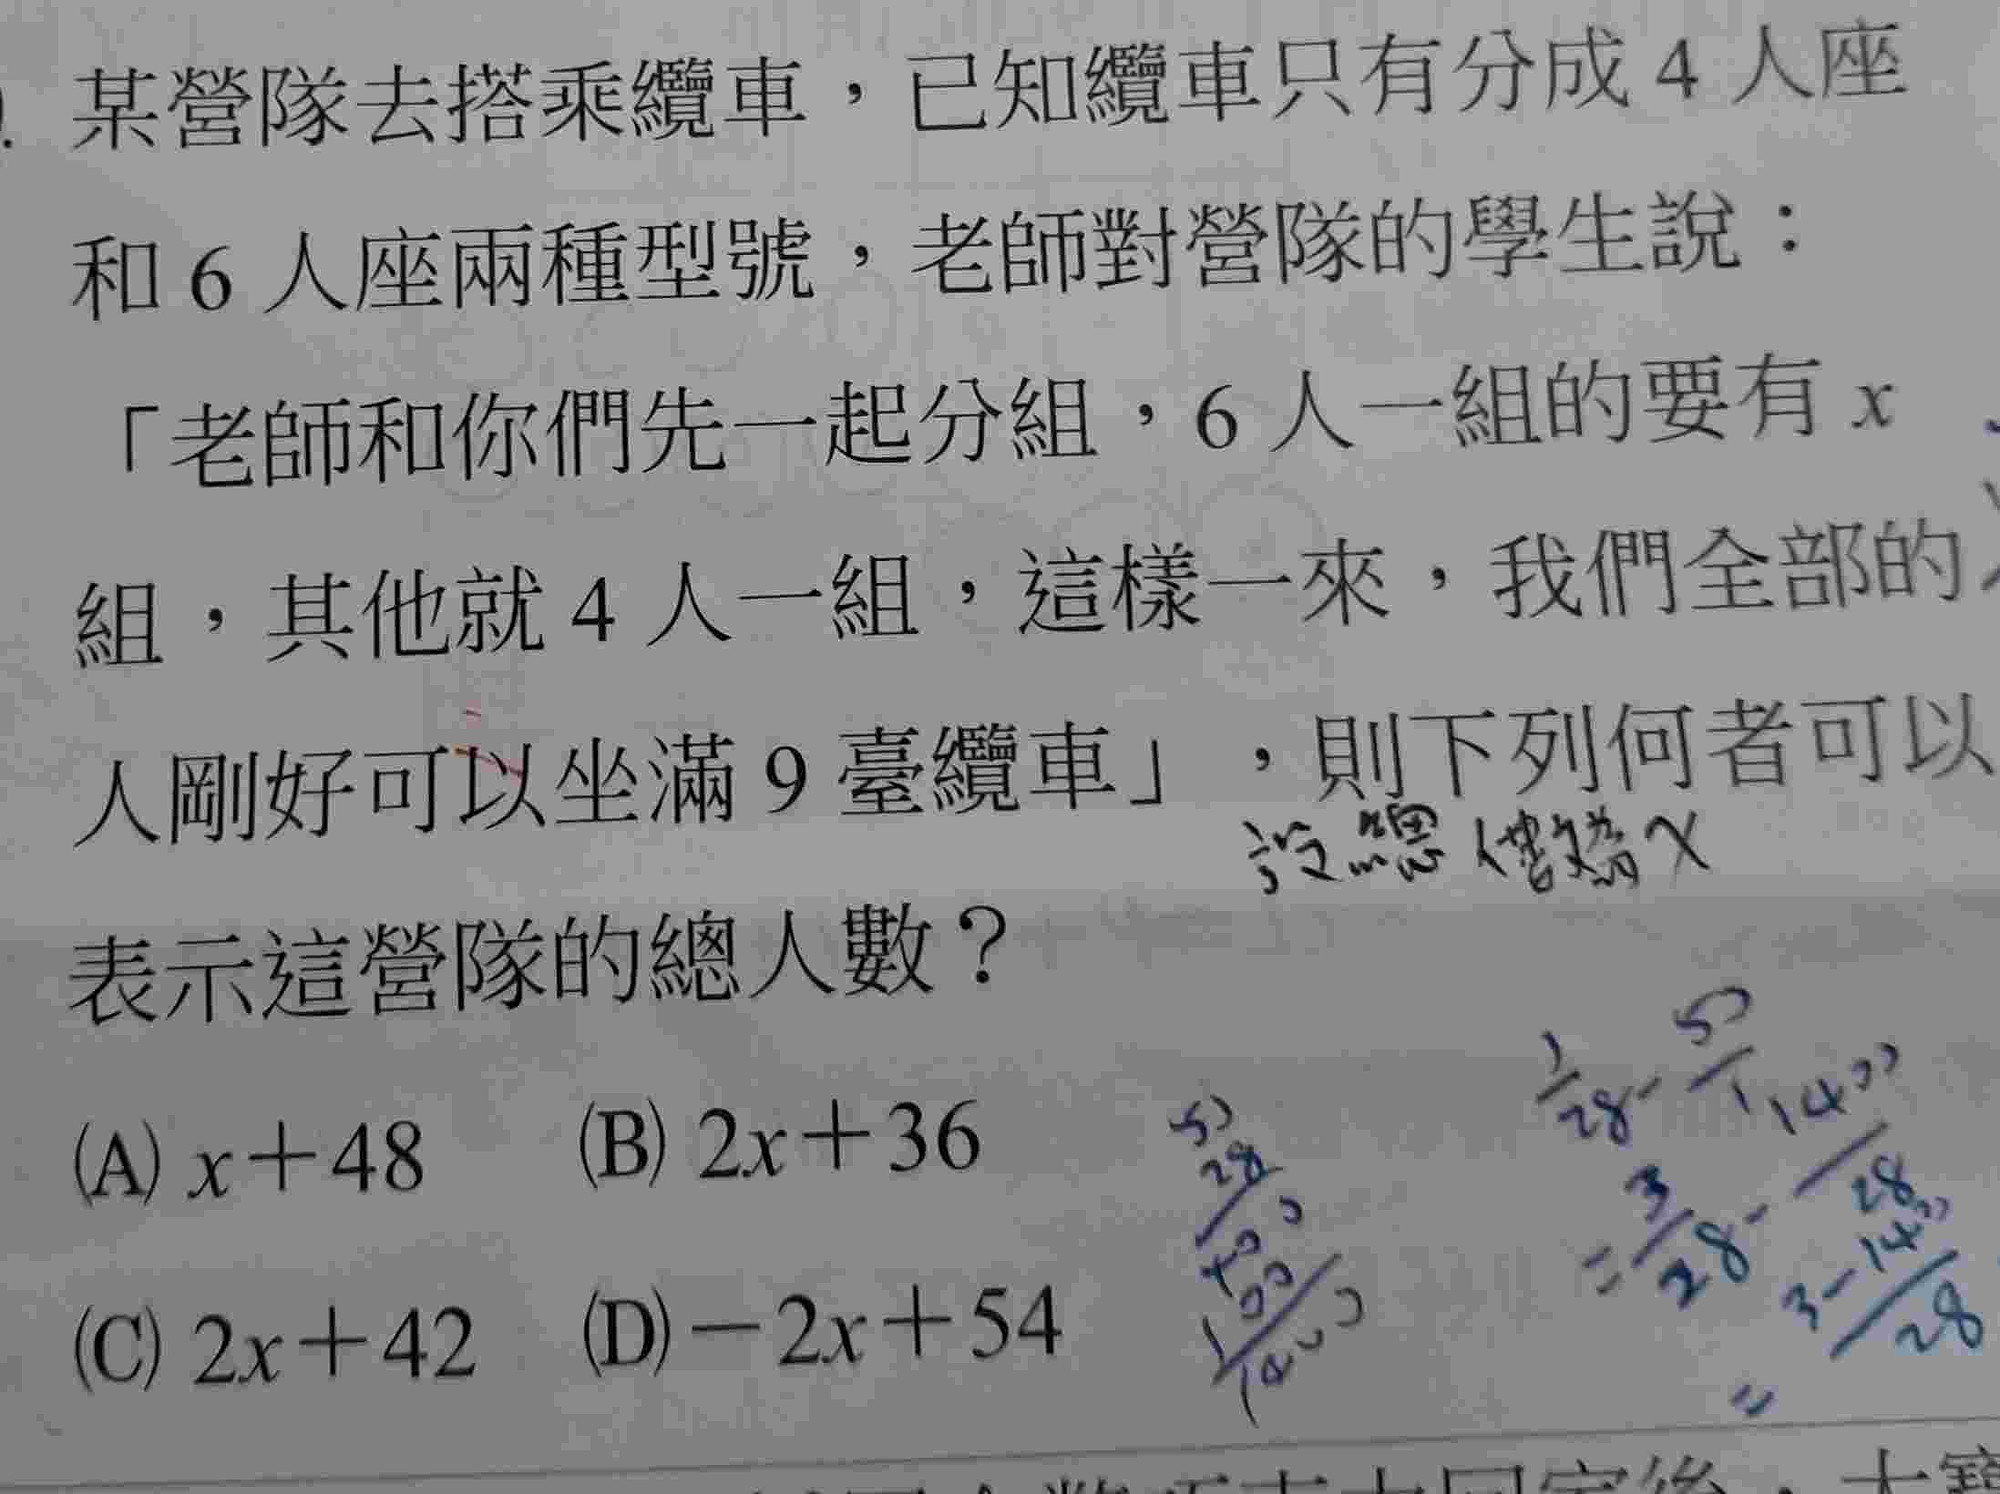 某營隊去搭乘纜車，已知纜車只有分成 4 人座
和 6 人座兩種型號，老師對營隊的學生說：
「老師和你們先一起分組，6 人一組的要有 x
組，其他就 4 人一組，這樣一來，我們全部的
人剛好可以坐滿 9 臺纜車」，則下列何者可以
設總價為 x
表示這營隊的總人數？
(A) x＋48 (B) 2x＋36
(C) 2x＋42 (D)－2x＋54